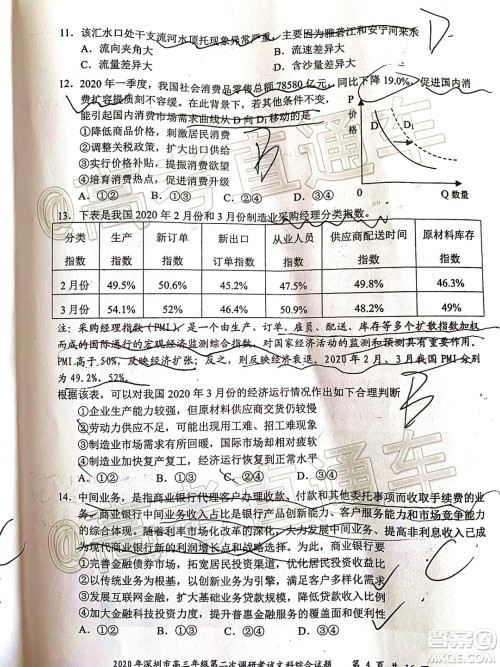 11. 该汇水口处干支流河水顶托现象异常严重，主要因为雅砻江和安宁河来汞
A. 流向夹角大 B. 流速差异大
C. 流量差异大 D. 含沙量差异大
12. 2020年一季度，我国社会消费品零售总额78580亿元，同比下降19.0%，促进国内消
费扩容提质刻不容缓。在此背景下，若其他条件不变，
能引起国内消费市场需求曲线从D向D₁移动的是
①降低商品价格，刺激居民消费
②调整关税政策，扩大出口供给
③实行价格补贴，提振消费欲望
④培育消费热点，促进消费升级
A. ①② B. ①③ C. ②④ D. ③④
P
价
格
D D₁
0 Q 数量
13. 下表是我国2020年2月份和3月份制造业采购经理分类指数。
分类 生产 新订单 新出口 从业人员 供应商配送时间 原材料库存
指数 指数 指数 订单指数 指数 指数 指数
2月份 49.5% 50.6% 45.2% 47.5% 49.8% 46.3%
3月份 54.1% 52% 46.4% 50.9% 48.2% 49%
注：采购经理指数(PMI)，是一个由生产、订单、雇员、配送、库存等多个扩散指数加权
而成的国际通行的宏观经济监测综合指数，对国家经济活动的监测和预测具有重要作用。
PMI高于50%，反映经济扩张；反之，则反映经济衰退。2020年2月、3月我国PMI分别
为49.2%、52%。
根据该表，可以对我国2020年3月份的经济运行情况作出如下合理判断
①企业生产能力较强，但原材料供应商交货仍较慢
②劳动力供应不足，出现招工难、用工难现象
③制造业市场需求不足，出口压力较大
④制造业加快复产复工，经济运行恢复到正常水平
A. ①② B. ①③ C. ②④ D. ③④
14. 中间业务，是指商业银行代理客户办理收款、付款和其他委托事项而收取手续费的业
务。商业银行中间业务收入占比是银行产品创新能力、客户服务能力和市场竞争能力
的综合体现。随着利率市场化改革的深化，大力发展中间业务、提高非利息收入已成
为现代商业银行新的利润增长点和战略选择。为此，商业银行要
①完善金融债券市场，拓宽居民投资渠道
②完善金融服务体系，满足客户多样化需求
③发展互联网金融，扩大存贷款业务规模，降低贷款成本
④加大金融科技投资力度，提升普惠金融服务的覆盖面和便利性
A. ①② B. ①③ C. ②④ D. ③④
2020年深圳市高三年级第二次调研考试文科综合试题 第 4 页 共
D
B
B
C
高考直通车
高考直通车